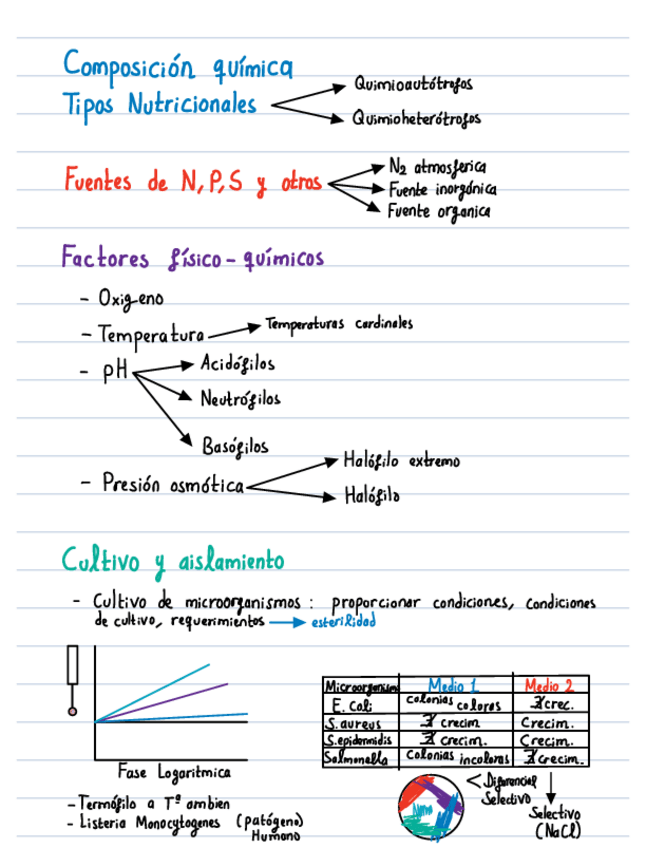 Composición química
Tipos Nutricionales
Quimioautótrofos
Quimioheterótrofos
Fuentes de N, P, S y otros
N₂ atmosferica
Fuente inorgónica
Fuente organica
Factores físico - químicos
- Oxigeno
- Temperatura
Temperaturas cardinales
- pH
Acidófilos
Neutrófilos
Basófilos
- Presión osmótica
Halófilo extremo
Halófilo
Cultivo y aislamiento
- Cultivo de microorganismos : proporcionar condiciones, condiciones
de cultivo, requerimientos → esterilidad
Fase Logaritmica
- Termófilo a Tª ambien
- Listeria Monocytogenes (patógeno)
Humano
Microorganismo Medio 1 Medio 2
E. Coli colonias coloras ∄ crec.
S. aureus ∄ crecim Crecim.
S. epidermidis ∄ crecim. Crecim.
Salmonella Colonias incoloras ∄ crecim.
< Diferencial
Selectivo
Selectivo
(NaCl)